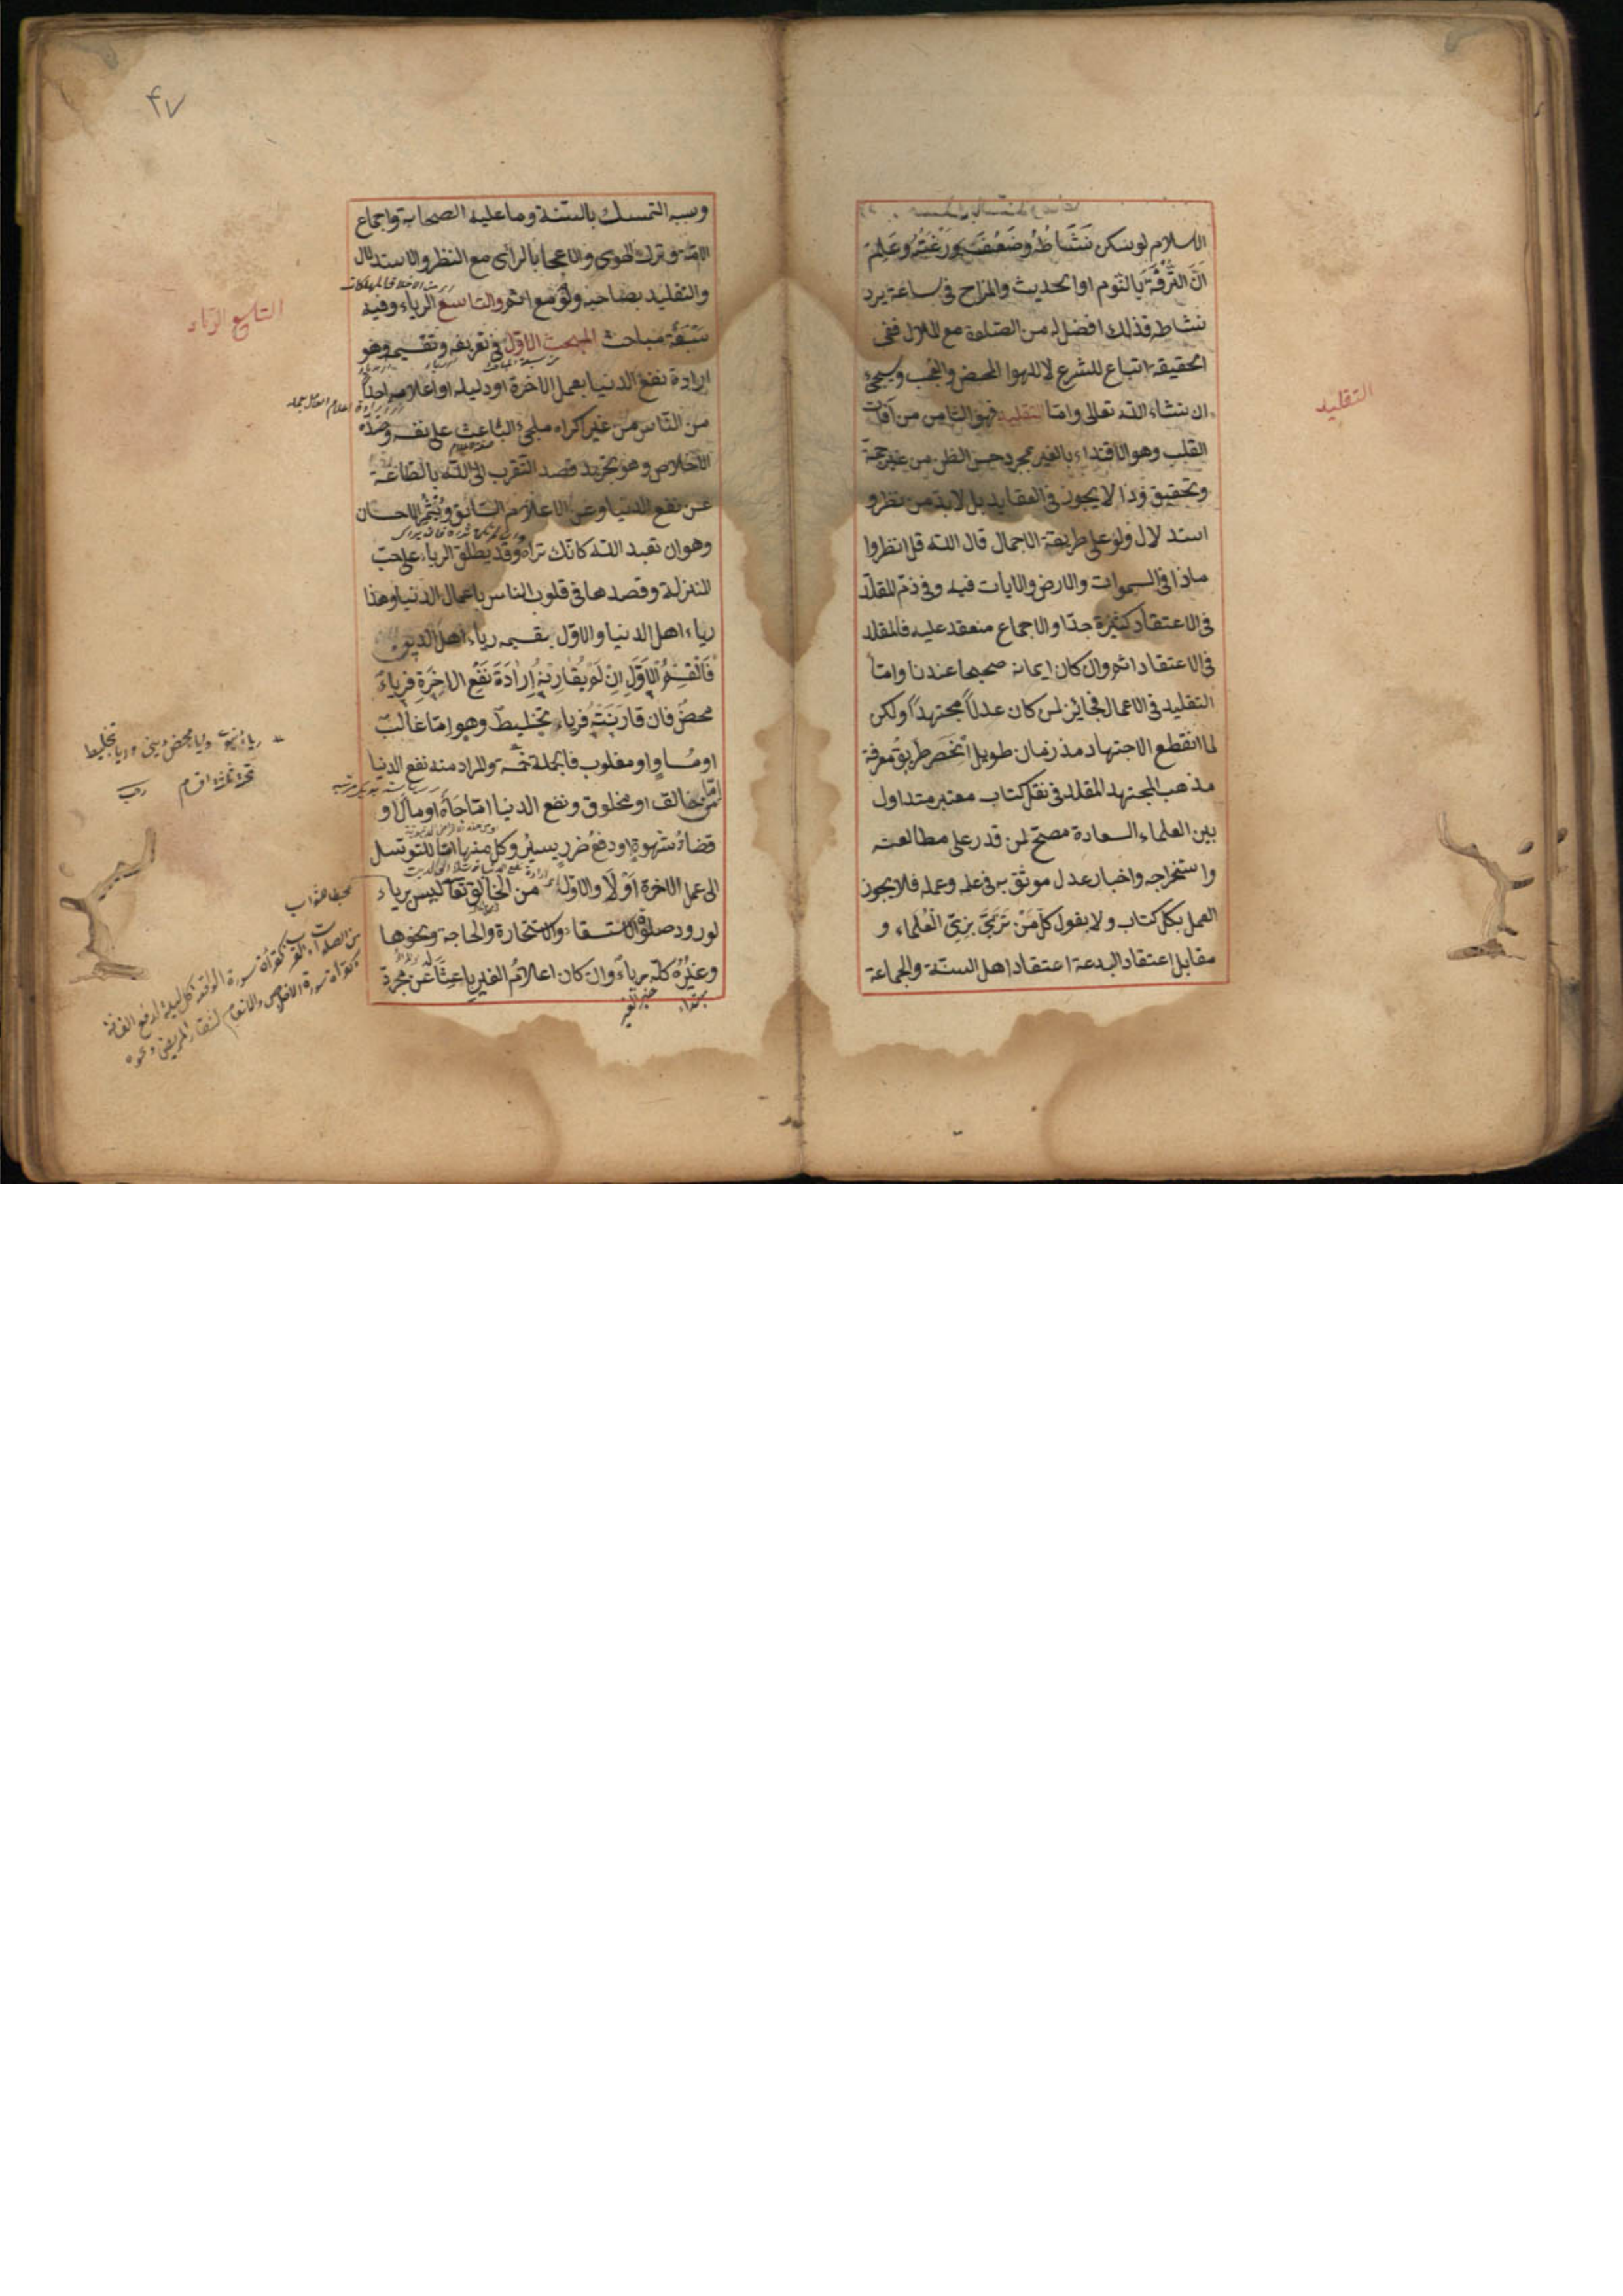 الاسلام لوسكن نَشَاطُهُ وضَعُفَتْ رَغْبَتُهُ وعَلِمَ
انّ التَّرَفُّهَ بالنوم او الحديث والمزاح فى ساعة يرد
نشاطه فذلك افضل له من الصلوة مع الملال ففى
الحقيقة اتباع للشرع لا للهوا المحض والعجب وسيجئ
ان شاء الله تعالى وامّا التقليد فهو الثامن من آفات
القلب وهو الاقتداء بالغير بمجرد حسن الظن من غير حجة
وتحقيق وذا لا يجوز فى العقايد بل لا بد من نظر و
استدلال ولو على طريقة الاجمال قال الله قل انظروا
ماذا فى السموات والارض والايات فيه وفى ذمّ المقلّد
فى الاعتقاد كثيرة جدّا والاجماع منعقد عليه فالمقلد
فى الاعتقاد اثم وان كان ايمانه صحيحا عندنا وامّا
التقليد فى الاعمال فجائز لمن كان عدلاً مجتهداً ولكن
لما انقطع الاجتهاد مذ زمان طويل انحصر طريق معرفة
مذهب المجتهد المقلد فى نقل كتاب معتبر متداول
بين العلماء السعادة مصحّح لمن قدر على مطالعته
واستخراجه واخبار عدل موثق به فى علمه وعمله فلا يجوز
العمل بكل كتاب ولا بقول كلّ مَنْ تَزَيَّ بزىّ الْعُلماء و
مقابل اعتقاد البدعة اعتقاد اهل السنّة والجماعة
التقليد
۴۷
وسببه التمسك بالسّنة وما عليه الصحابة واجماع
الامّة وترك الهوى والاعجاب بالراى مع النظر والاستدلال
والتقليد بصاحبه ولو مع اثم والتاسع الرياء وفيه
سَبْعَة مباحث المبحث الاوّل فى تعريفه وتقسيمه وهو
ارادة نفع الدنيا بعمل الاخرة او دليله او اعلامه احدًا
من النّاس من غير اكراه ملجئ الباعث على نفسه وضدّه
الاخلاص وهو تجريد قصد التقرب الى الله بالطاعة
عن نفع الدنيا وعن الاعلام السّابق ويُثْمِرُ الاحسان
وهو ان تعبد الله كانّك تراه وقد يطلق الرياء على حبّ
المنزلة وقصدها فى قلوب الناس باعمال الدنيا وهذا
رياء اهل الدنيا والاوّل بقسميه رياء اهل الدين
فَالْقِسْمُ الاَوَّل اِنْ لَمْ يُقَارِنْهُ اِرَادَةَ نَفْعِ الاخِرَةِ فرياءٌ
محضٌ فان قارنَتْهُ فرياء تخليط وهو امّا غالب
او مُساوٍ او مغلوب فالجملة خمسة والمراد منه نفع الدنيا
امّا من خالق او مخلوق ونفع الدنيا امّا جَاهٌ او مالٌ او
قضاءُ شهوةٍ او دفعُ ضررٍ يسيرٍ وكل منها امّا للتوسّل
الى عمل الاخرة اَوْ لَا والاوّل من الخالق تعا ليس برياء
لورود صلوة الاستسقاء والاستخارة والحاجة ونحوها
وغيرُهُ كلّه رياءٌ وان كان اعلامُ الغير باعثًا عن مجرّد
التاسع الرياء